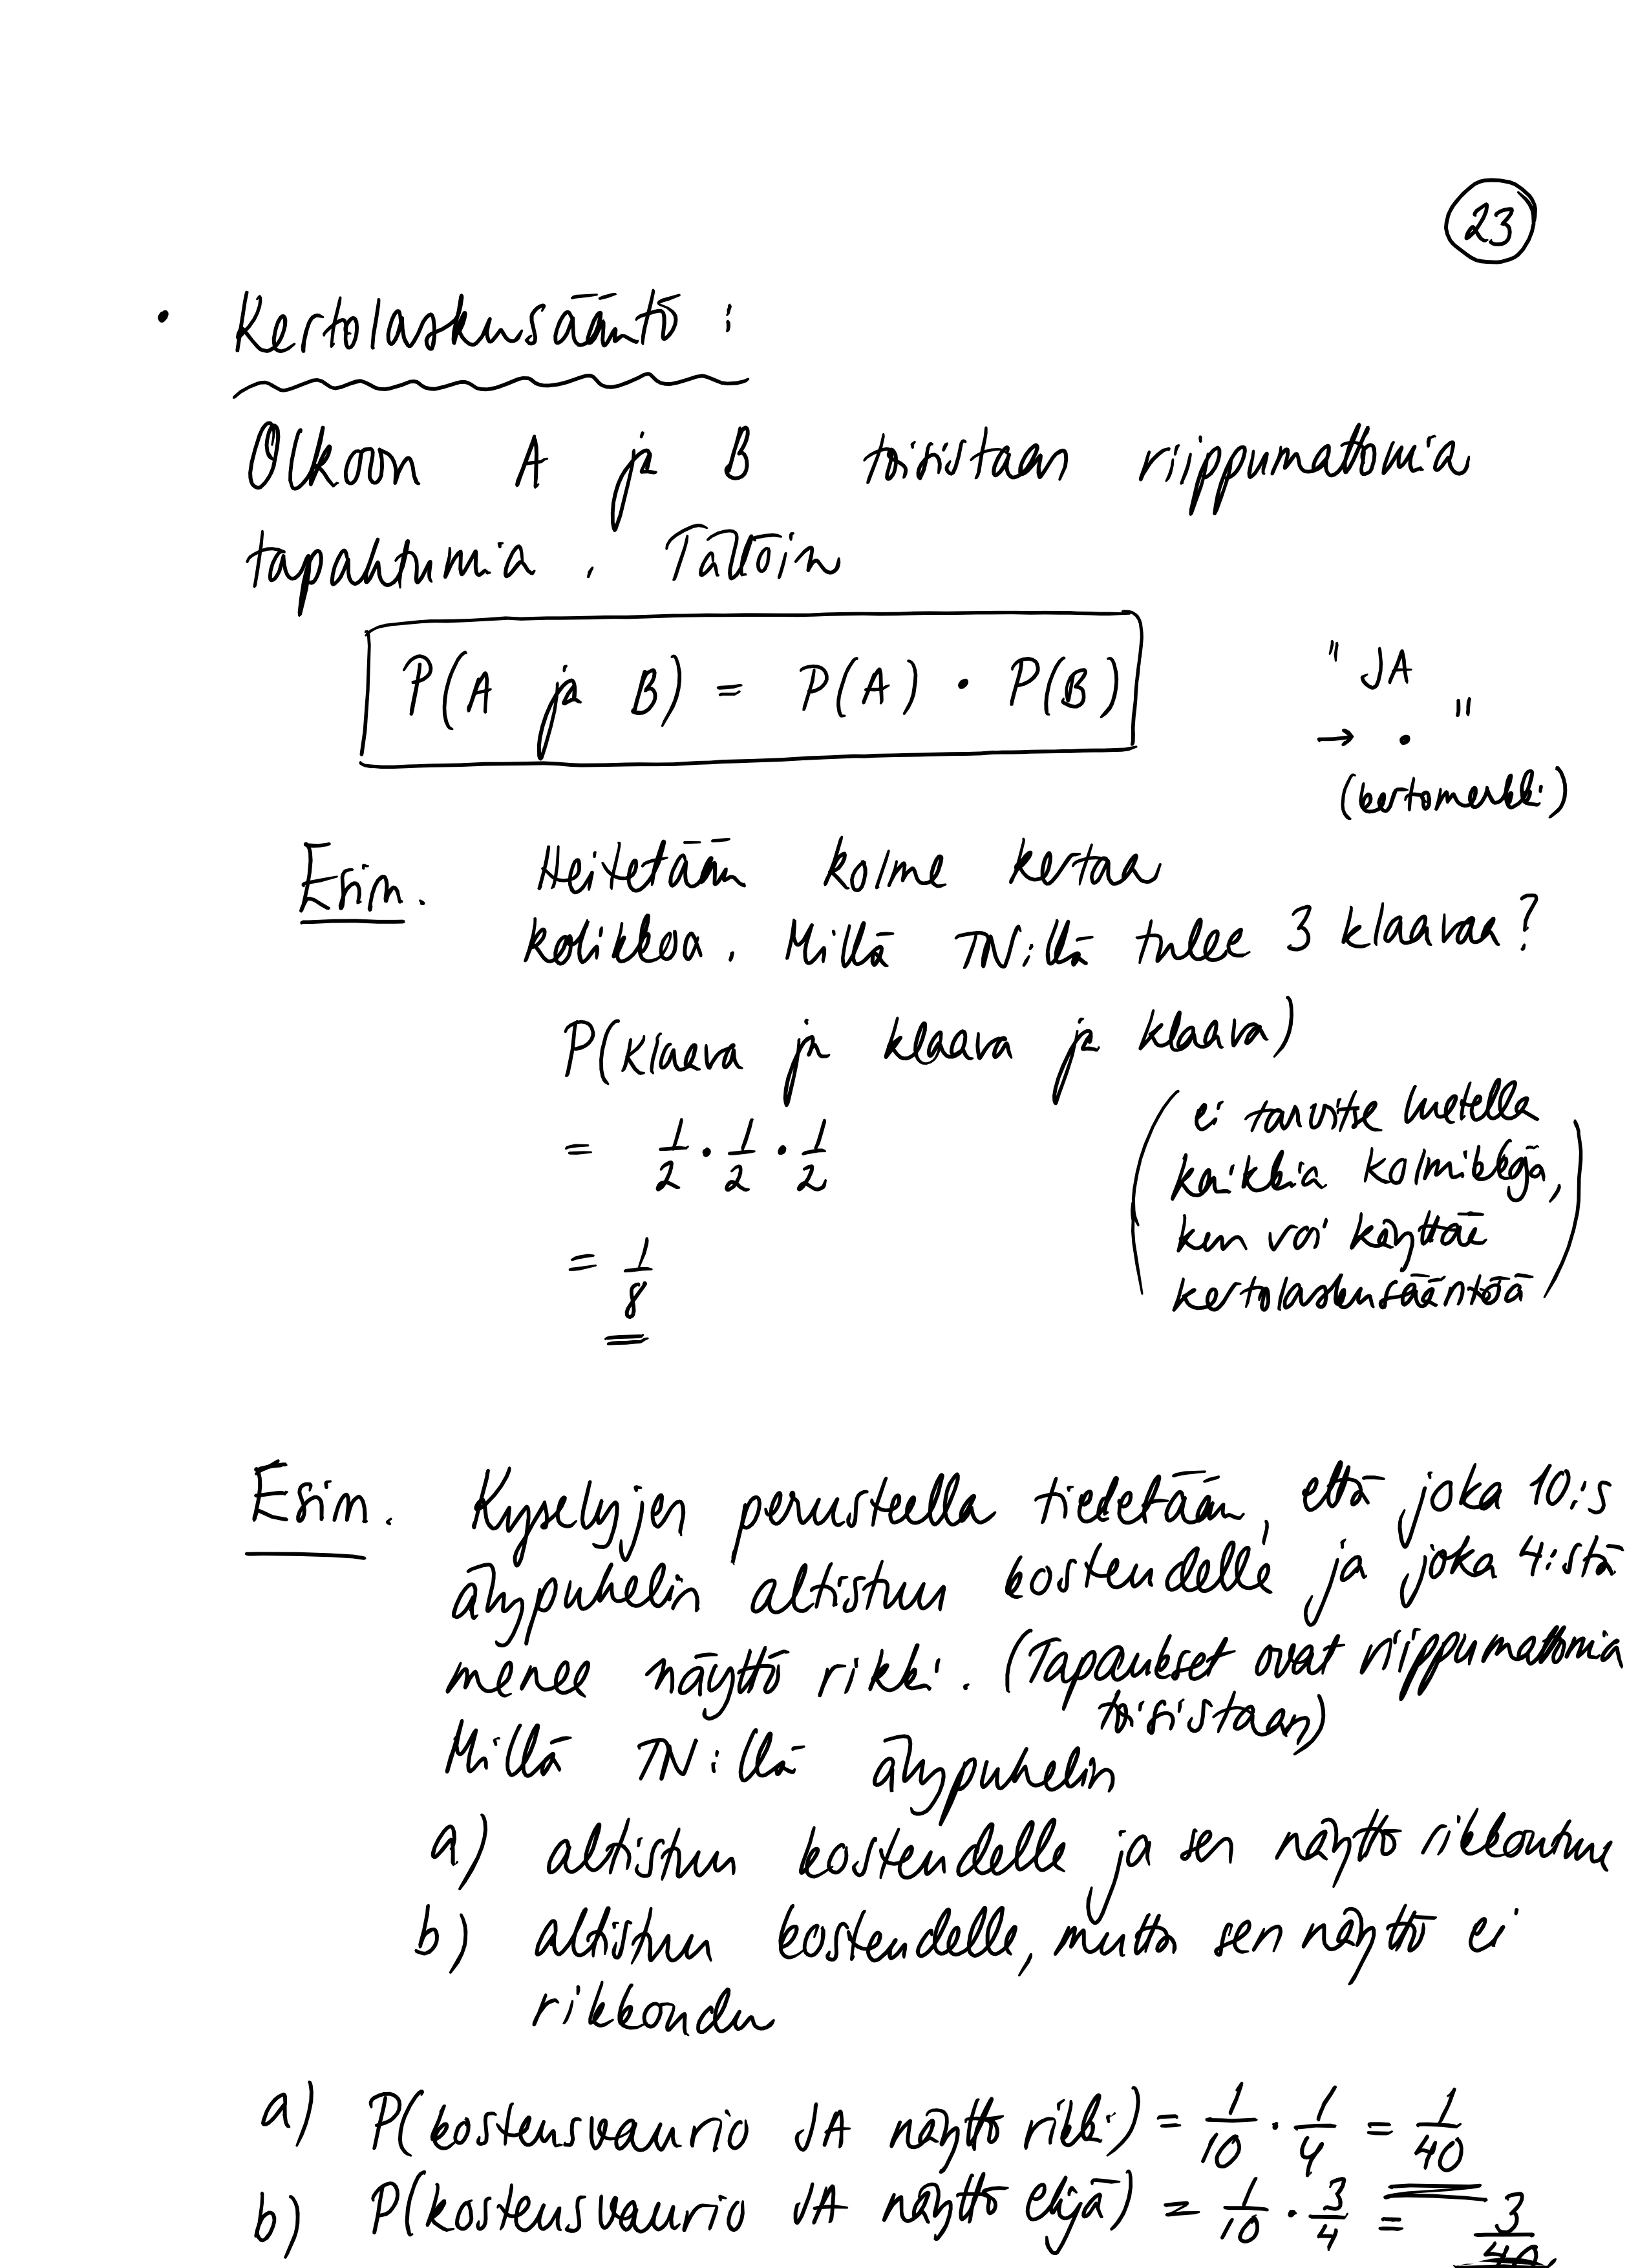 23
• Kertolaskusääntö :
Olkoon A ja B toisistaan riippumattomia
tapahtumia . Tällöin
P(A ja B) = P(A) • P(B)
" JA
→ • "
(kertomerkki)
Esim. Heitetään kolme kertaa
kolikkoa . Millä TN:llä tulee 3 klaavaa ?
P(klaava ja klaava ja klaava)
= 1/2 • 1/2 • 1/2
= 1/8
( ei tarvitse luetella
kaikkia kolmikkoja,
kun voi käyttää
kertolaskusääntöä )
Esim. Kyselyjen perusteella tiedetään, että joka 10:s
älypuhelin altistuu kosteudelle ja joka 4:stä
menee näyttö rikki . (Tapaukset ovat riippumattomia
toisistaan)
Millä TN:llä älypuhelin
a) altistuu kosteudelle ja sen näyttö rikkoutuu
b) altistuu kosteudelle, mutta sen näyttö ei
rikkoudu
a) P(kosteusvaurio JA näyttö rikki) = 1/10 • 1/4 = 1/40
b) P(kosteusvaurio JA näyttö ehjä) = 1/10 • 3/4 = 3/40